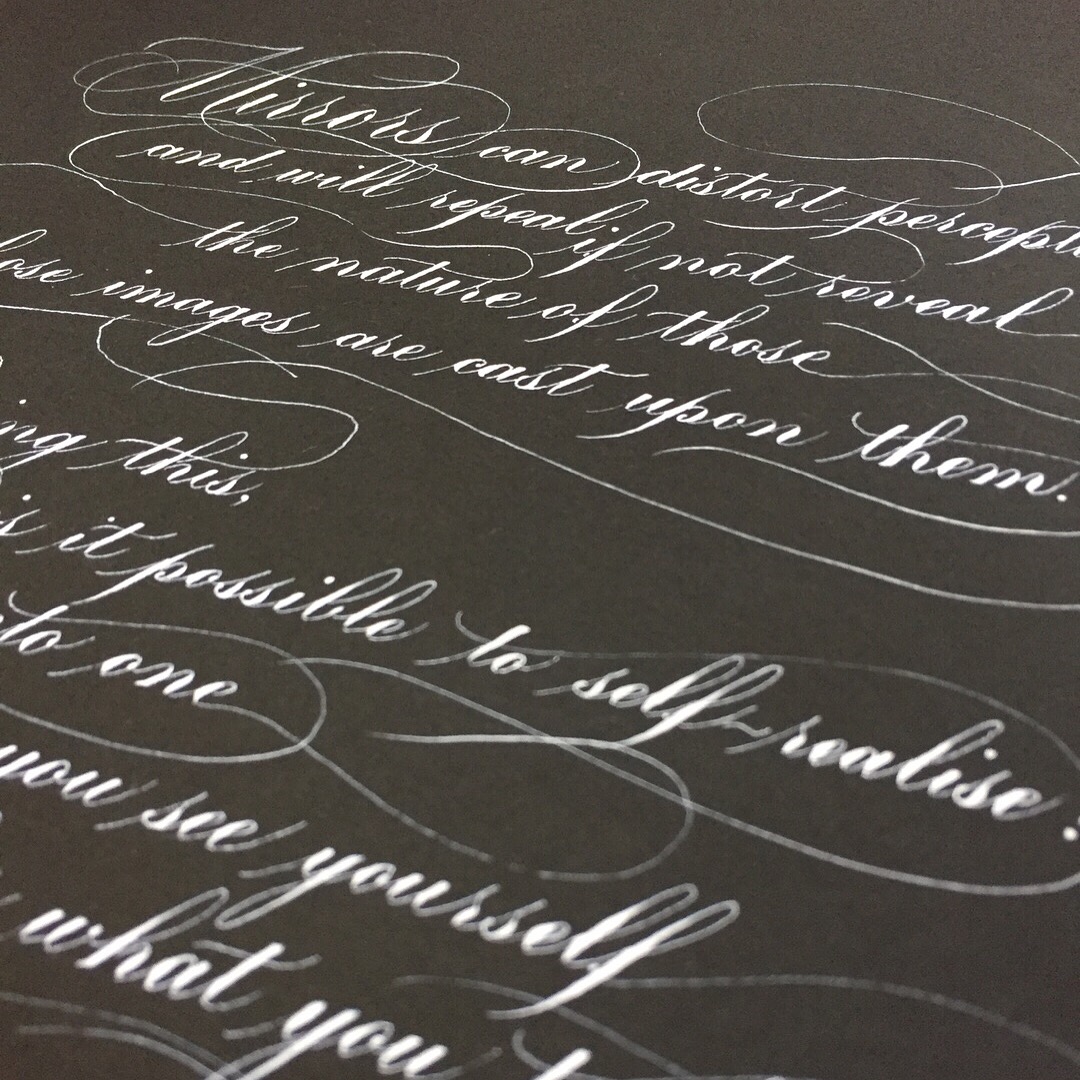 Mirrors can distort
and will repeal if not reveal
the nature of those
images are cast upon them.
this,
it possible to self-realise?
one
you see yourself
what you